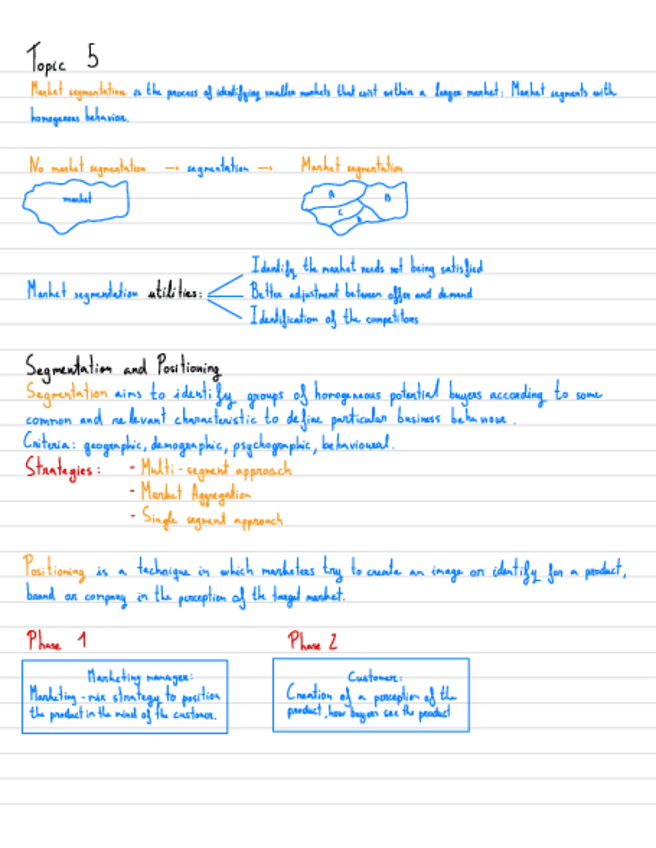 Topic 5
Market segmentation is the process of identifying smaller markets that exist within a larger market: Market segments with
homogenous behavior.
No market segmentation → segmentation → Market segmentation
market
A
B
C
D
Identify the market needs not being satisfied
Market segmentation utilities:
Better adjustment between offer and demand
Identification of the competitors
Segmentation and Positioning
Segmentation aims to identify groups of homogeneous potential buyers according to some
common and relevant characteristic to define particular business behaviour.
Criteria: geographic, demographic, psychographic, behavioural.
Strategies: - Multi-segment approach
- Market Aggregation
- Single segment approach
Positioning is a technique in which marketers try to create an image or identify for a product,
brand or company in the perception of the target market.
Phase 1
Phase 2
Marketing manager:
Marketing-mix strategy to position
the product in the mind of the customer.
Customer:
Creation of a perception of the
product, how buyers see the product